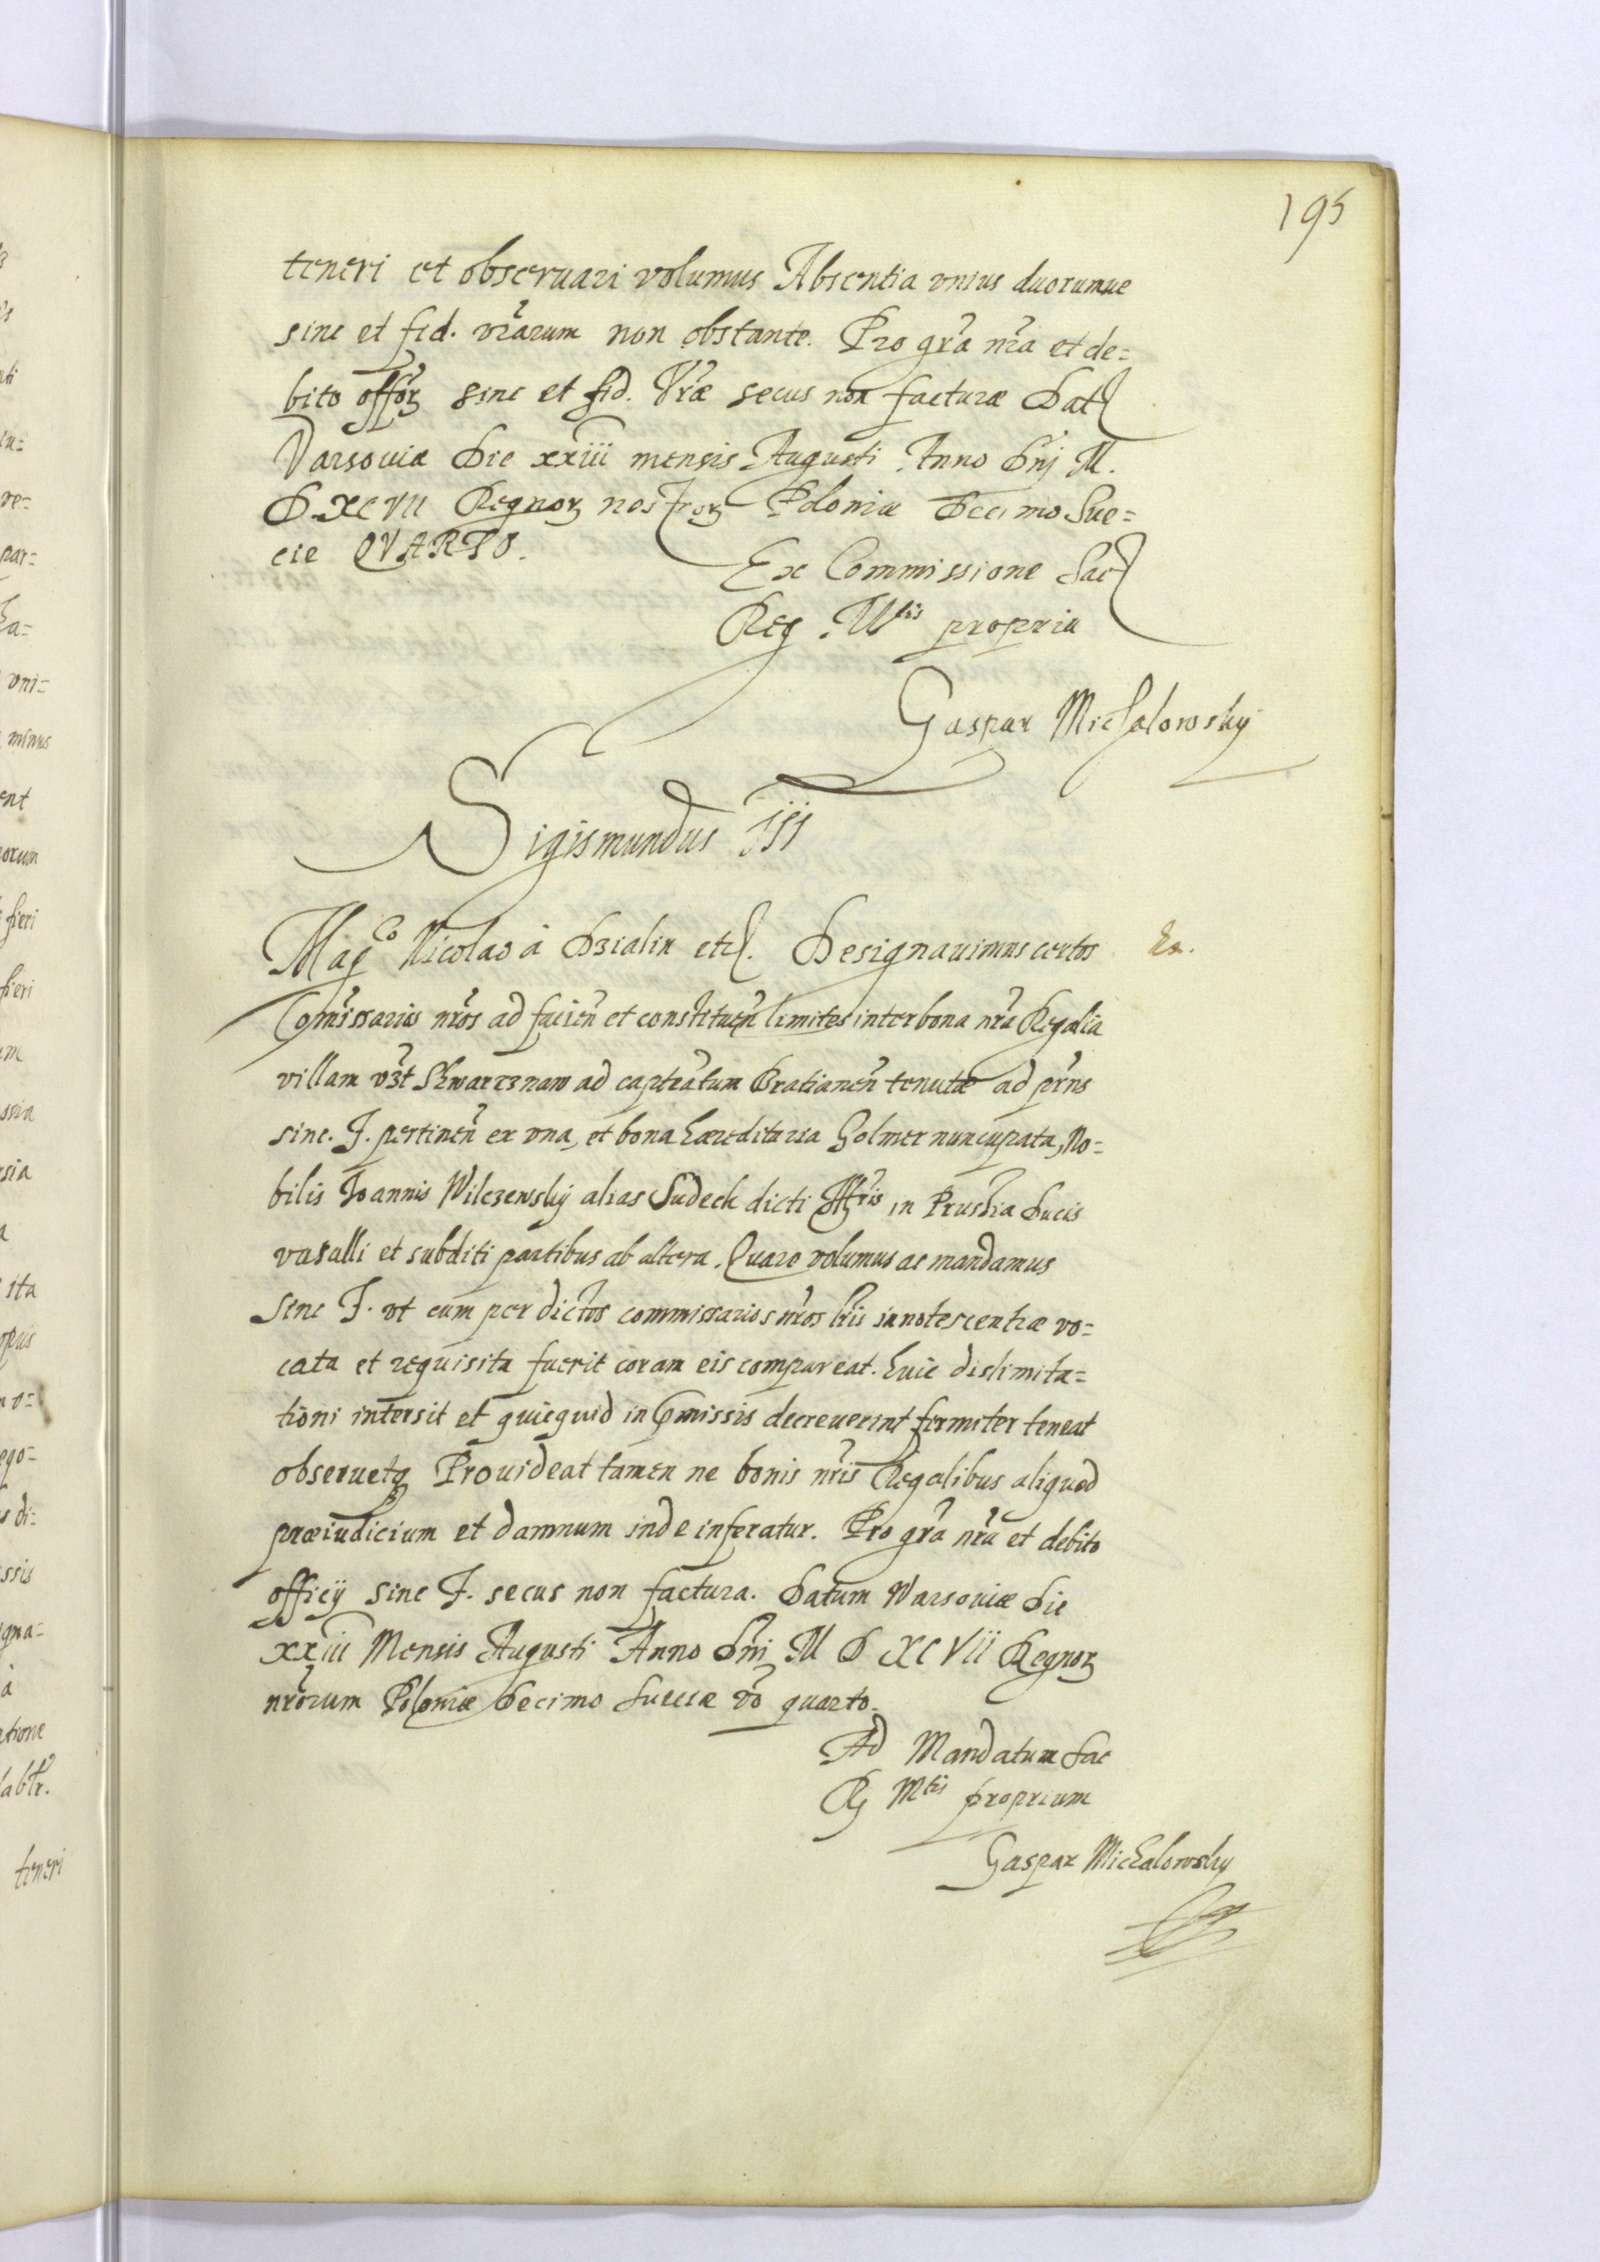 195
teneri et obseruari volumus Absentia vnius duorumue
sinc et fid. vrãrum non obstante. Pro grã nrã et de=
bito offor sinc et fid. Vræ secus non facturæ Dat
Varsouiæ Die xxiii mensis Augusti Anno Dnj M.
D. XC VII Regnor nostror Poloniæ Decimo Sue=
cie QVARTO.
Ex Commissione Sac
Reg Mtis propria
Gaspar Michalowsky
Sigismundus III
Magco Nicolao â Dzialin etc. Designauimus certos
Comissarios nros ad facien et constituen limites inter bona nra Regalia
villam vzt Shwartznaw ad captratum Bratianen tenutæ ad prns
sinc. F. pertinen ex vna, et bona hæreditaria Golmer nuncupata, No=
bilis Joannis Wilczewsky alias Sudeck dicti in Prussia Ducis
vasalli et subditi partibus ab altera. Quare volumus ac mandamus
Sinc F. vt cum per dictos commissarios nros lris innotescentiæ vo=
cata et requisita fuerit coram eis compareat. huic dislimita=
tioni intersit et quicquid in pmissis decreuerint firmiter teneat
obseruetq Prouideat tamen ne bonis nris Regalibus aliquod
præiudicium et damnum inde inferatur. Pro gra nra et debito
officij sinc F. secus non factura. Datum Warsouiæ Die
xxiii Mensis Augusti Anno Dni M D XC VII Regnor
nrorum Poloniæ Decimo Sueciæ vo quarto.
Ad Mandatum Sac
Rg Mtis proprium
Gaspar Michalowsky
teneri